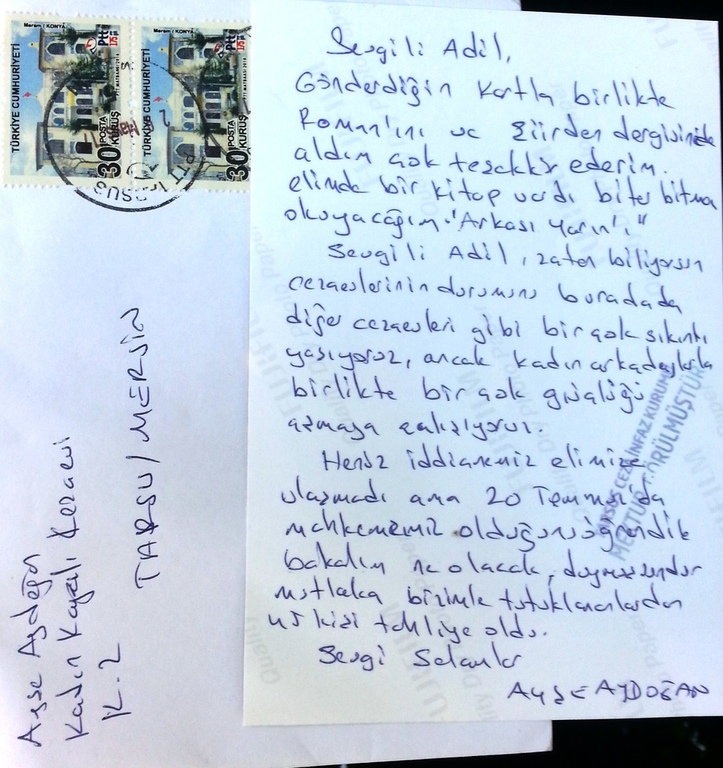 Sevgili Adil,
Gönderdiğin Kartla birlikte
Roman'ını ve Şiirden dergisinide
aldım çok teşekkür ederim.
elimde bir kitap vardı biter bitmez
okuyacağım "Arkası Yarın'ı"
Sevgili Adil, zaten biliyorsun
cezaevlerinin durumunu buradada
diğer cezaevleri gibi bir çok sıkıntı
yaşıyoruz, ancak kadın arkadaşlarla
birlikte bir çok güçlüğü
aşmaya çalışıyoruz.
Henüz iddianemiz elimize
ulaşmadı ama 20 Temmuz'da
mahkememiz olduğunu öğrendik
bakalım ne olacak, duymuşsundur
mutlaka bizimle tutuklananlardan
üç kişi tahliye oldu.
Sevgi Selamlar
AYŞE AYDOĞAN
TARSUS CEZA İNFAZ KURUMU
MEKTUP GÖRÜLMÜŞTÜR
Ayşe Aydoğan
Kadın Kapalı Cezaevi
K.2
TARSUS/MERSİN
TÜRKİYE CUMHURİYETİ
Meram / KONYA
Ptt
175
30 POSTA KURUŞ
TÜRKİYE CUMHURİYETİ
Meram / KONYA
Ptt
175
30 POSTA KURUŞ